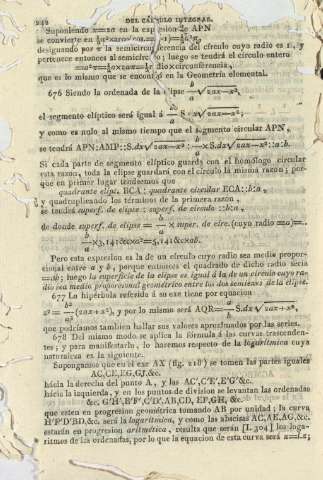 242 DEL CÁLCULO INTEGRAL.
Suponiendo x=2a en la expresion de APN
se convierte en
designando por π la semicircunferencia del círculo cuyo radio es 1, y
pertenece entonces al semicírculo; luego se tendrá el círculo entero
que es lo mismo que se encontró en la Geometría elemental.
676 Siendo la ordenada de la elipse
el segmento elíptico será igual á
y como es nulo al mismo tiempo que el segmento circular APN,
se tendrá APN:AMP::S.dx√2ax—x²: b/a ×S.dx√2ax—x²::a:b.
Si cada parte de segmento elíptico guarda con el homólogo circular
esta razon, toda la elipse guardará con el círculo la misma razon; por-
que en primer lugar tendremos que
quadrante elipt. BCA: quadrante circular ECA::b:a,
y quadruplicando los términos de la primera razon,
se tendrá superf. de elipse : superf. de círculo ::b:a,
de donde superf. de elipse = b/a × super. de circ.(cuyo radio =a)=..
b/a ×3,141&c×a²=3,141&c×ab.
Pero esta expresion es la de un círculo cuyo radio sea medio propor-
cional entre a y b, porque entonces el quadrado de dicho radio sería
=ab; luego la superficie de la elipse es igual á la de un círculo cuyo ra-
dio sea medio proporcional geométrico entre los dos semiexes de la elipse.
677 La hipérbola referida á su exe tiene por equacion
z²= b²/a² (2ax+x²), y por lo mismo será AQR= b/a S.dx√2ax+x²,
que podríamos tambien hallar sus valores aproximados por las series.
678 Del mismo modo se aplica la fórmula á las curvas trascenden-
tes; y para manifestarlo, lo haremos respecto de la logarítmica cuya
naturaleza es la siguiente.
Supongamos que en el exe AX (fig. 218) se tomen las partes iguales
AC,CE,EG,GJ,&c.
hácia la derecha del punto A, y las AC',C'E',E'G'&c.
hácia la izquierda, y en los puntos de division se levantan las ordenadas
&c. G'H',E'F',C'D',AB,CD, EF,GH, &c.
que esten en progresion geométrica tomando AB por unidad; la curva
H'F'D'BD,&c. será la logarítmica, y como las abscisas AC,AE,AG,&c.
estarán en progresion aritmética, resulta que serán [I. 304] los loga-
ritmos de las ordenadas, por lo que la equacion de esta curva será x=l.z;